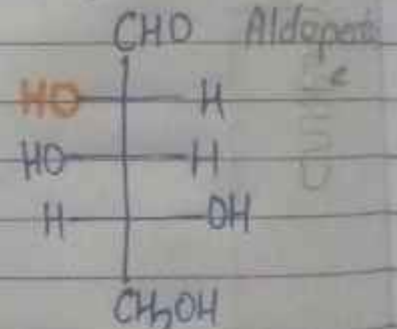 CHO Aldopentos
e
HO H
HO H
H OH
CH₂OH